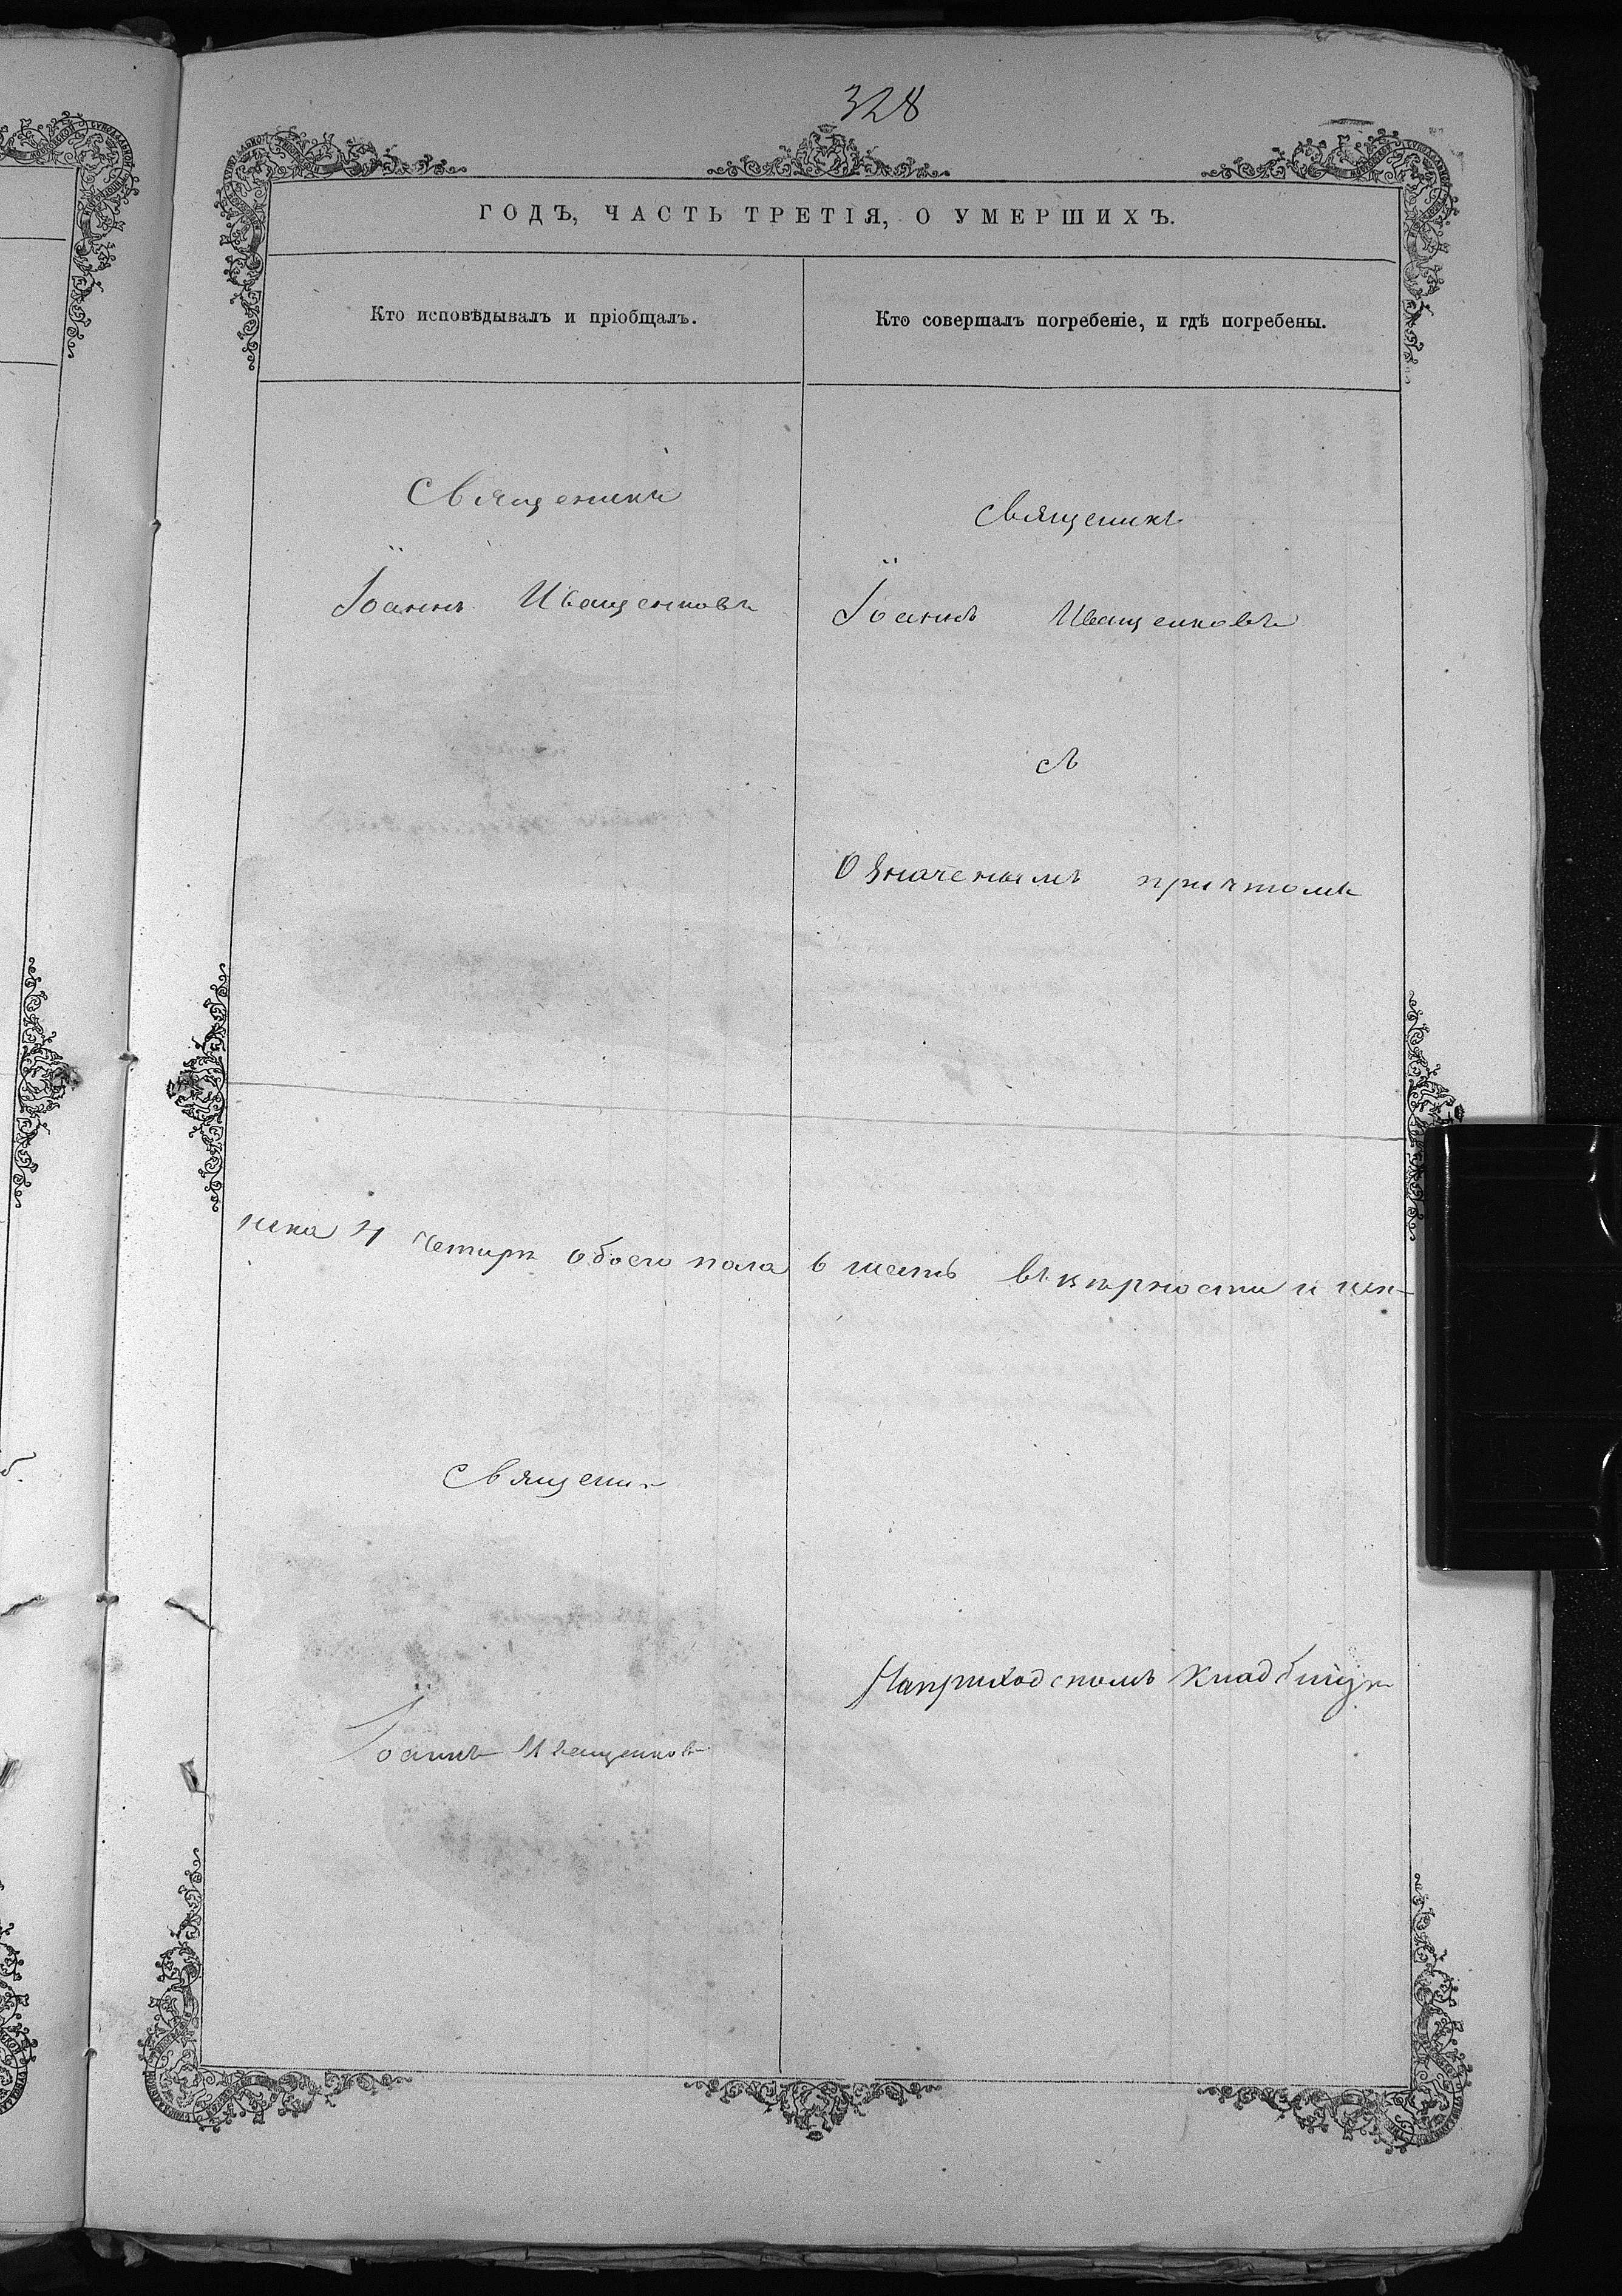 328
ГОДЪ, ЧАСТЬ ТРЕТІЯ, О УМЕРШИХЪ.
Кто исповѣдывалъ и пріобщалъ.
Кто совершалъ погребеніе, и гдѣ погребены.
Священикъ
Іоаннъ Иващенковъ
Священикъ
Іоаннъ Иващенковъ
съ
Означенымъ причтомъ
ска 4 четыри обоего пола 6 шесть вѣ вѣрности и
Священи
Іоаннъ Иващенковъ
Наприходскомъ Кладбищѣ